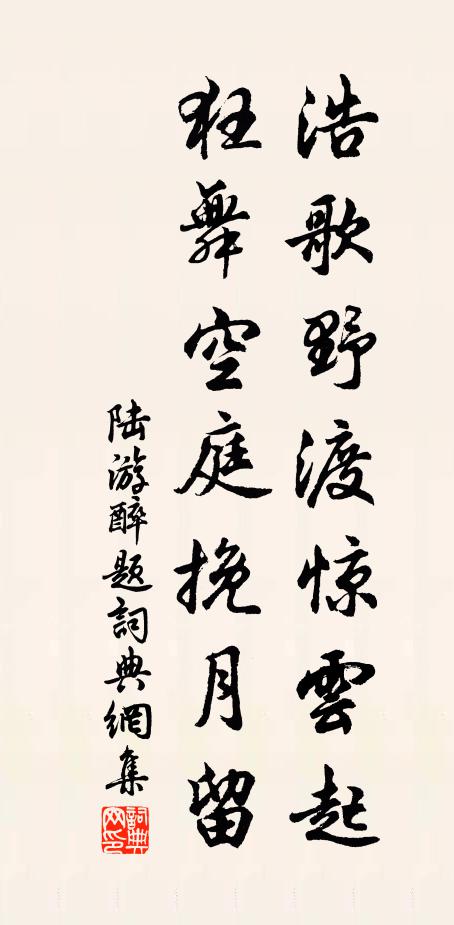 浩歌野渡惊雲起
狂舞空庭挽月留
陆游醉题詞典網集
詞典网印